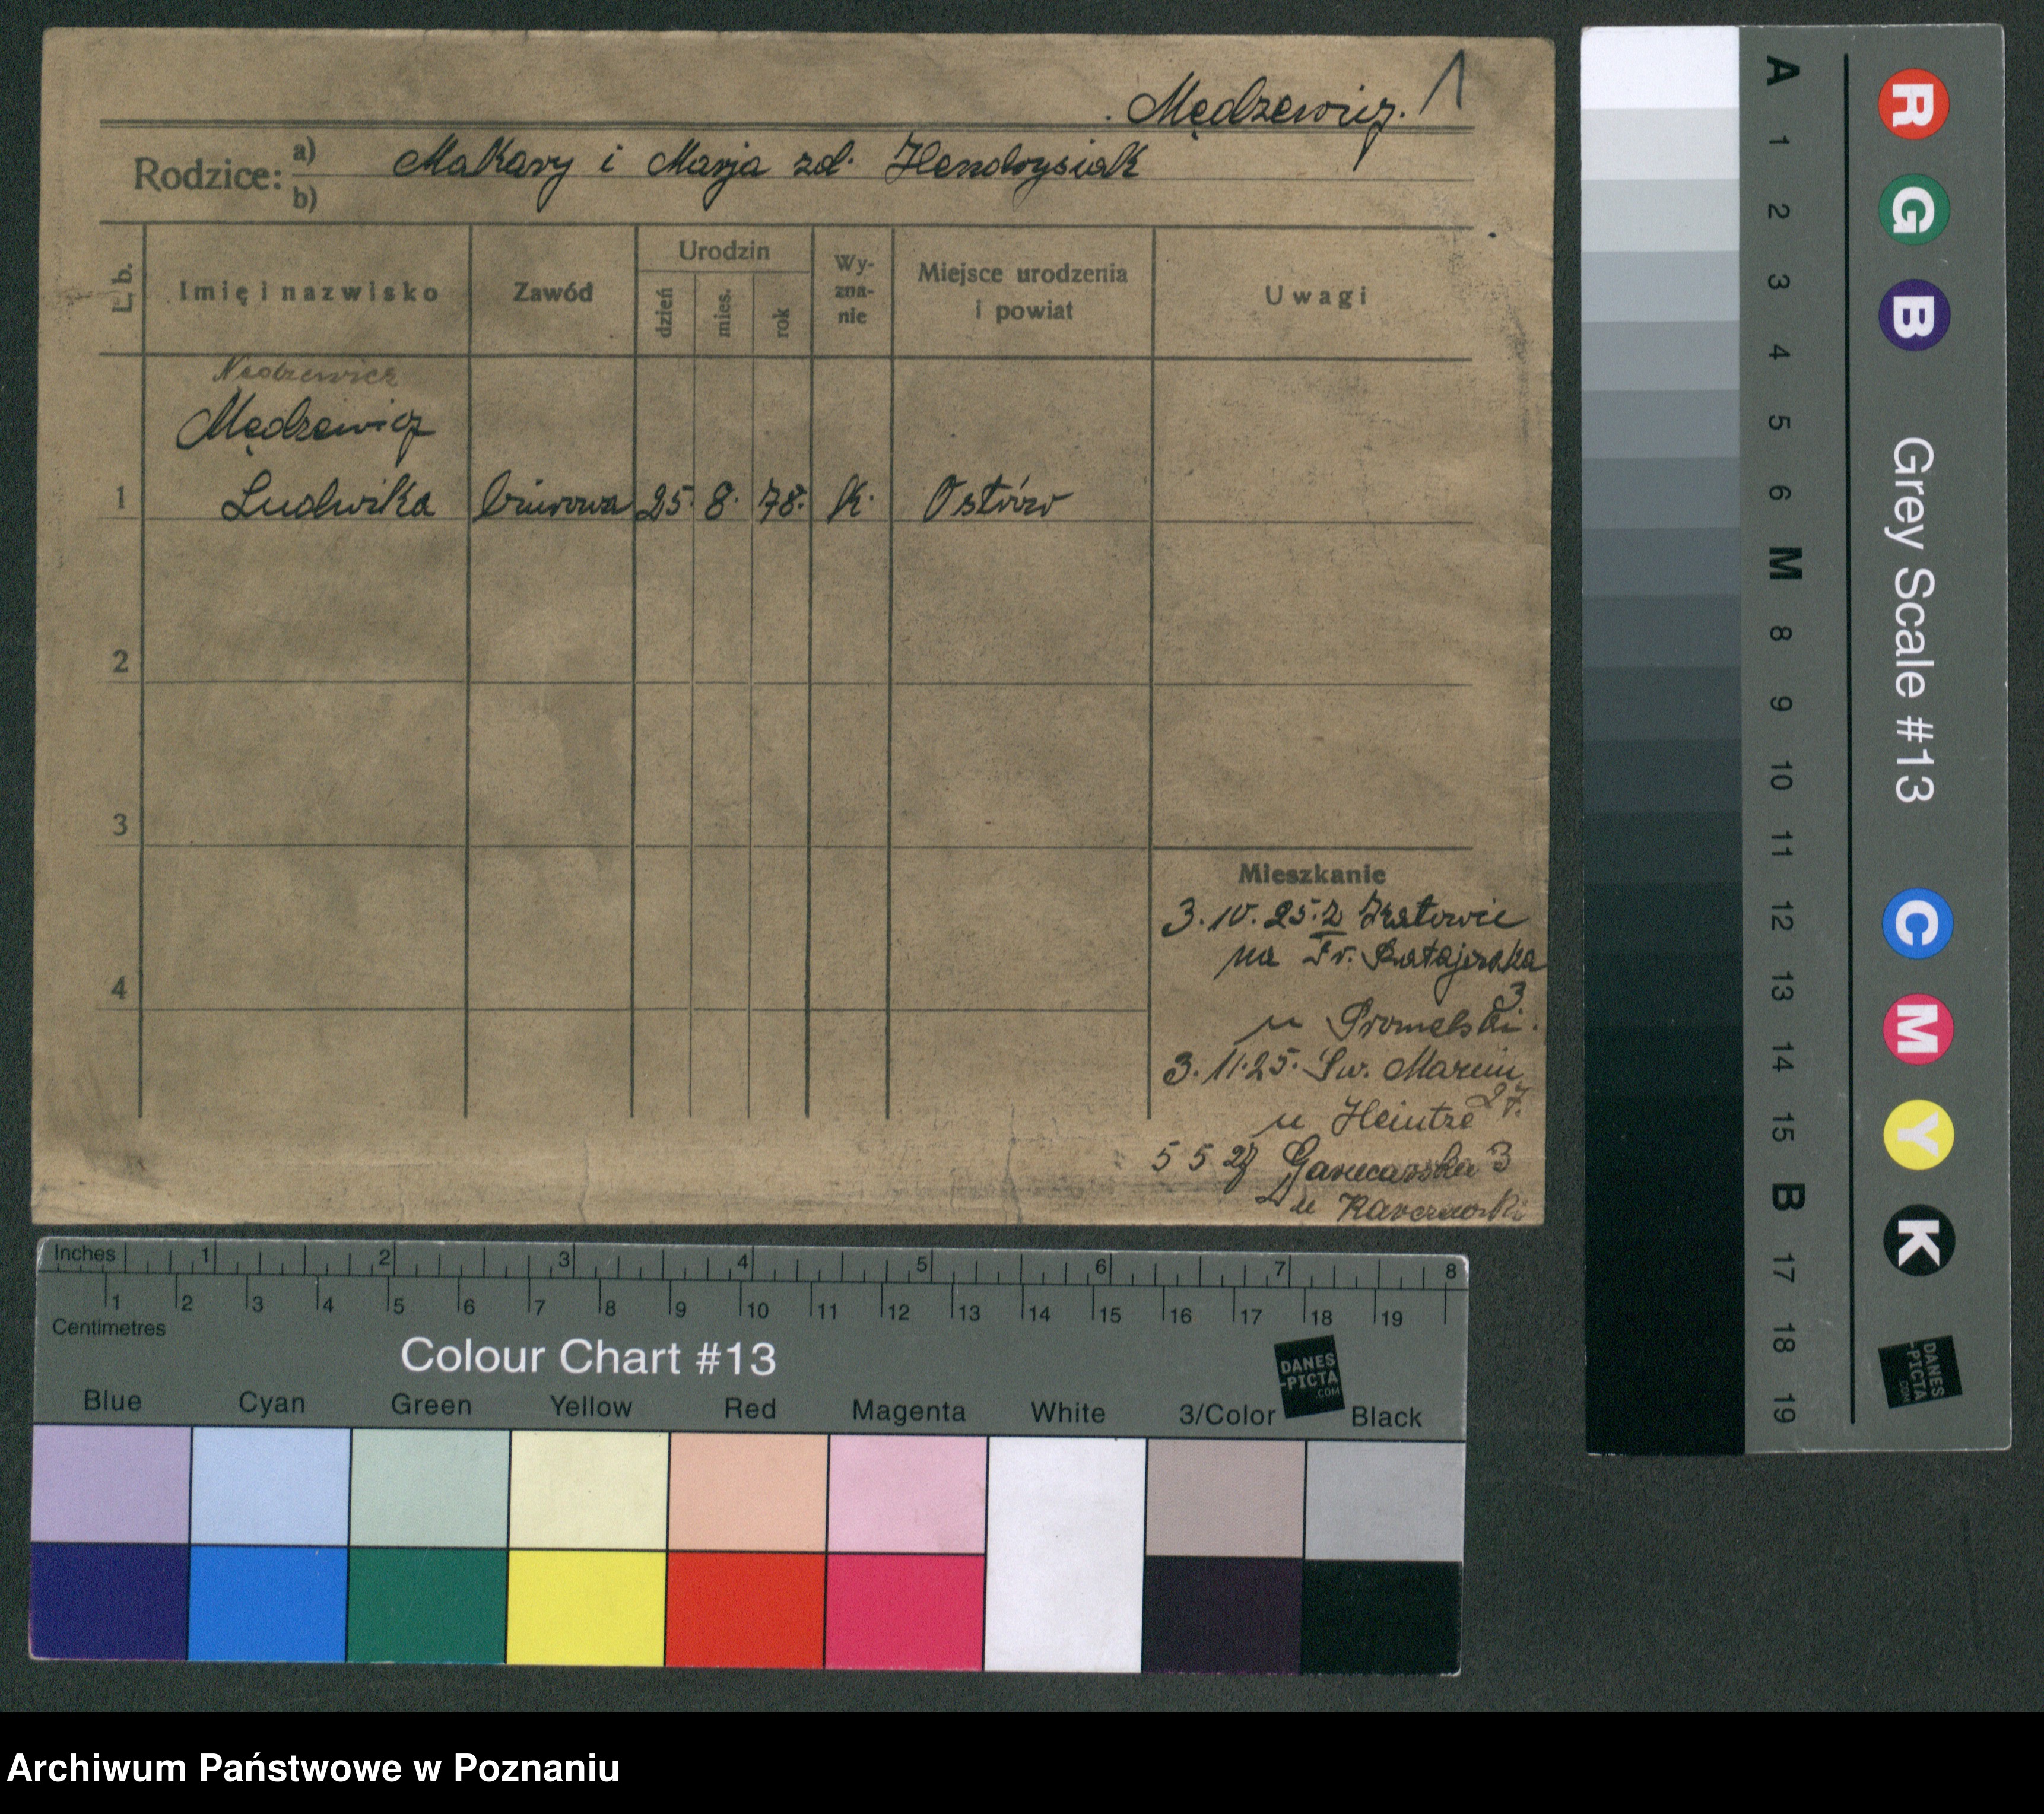 Mędzewicz. 1
Rodzice: a) Makary i Marja zd. Hendrysiak
b)
L. b.
Imię i nazwisko
Zawód
Urodzin
dzień
mies.
rok
Wy-
zna-
nie
Miejsce urodzenia
i powiat
Uwagi
Nędzewicz
Mędzewicz
1 Ludwika biurowa 25. 8. 78. k. Ostrów
2
3
4
Mieszkanie
3. 10. 25. z Katowic
na Fr. Ratajczaka
3
u
3. 11. 25. Św. Marcin
27.
u Heintze
5 5 27 Garncarska 3
u
Inches 1 2 3 4 5 6 7 8
1 2 3 4 5 6 7 8 9 10 11 12 13 14 15 16 17 18 19
Centimetres
Colour Chart #13
DANES
-PICTA
.COM
Blue Cyan Green Yellow Red Magenta White 3/Color Black
A 1 2 3 4 5 6 M 8 9 10 11 12 13 14 15 B 17 18 19
R G B Grey Scale #13 C M Y K
DANES
-PICTA
.COM
Archiwum Państwowe w Poznaniu